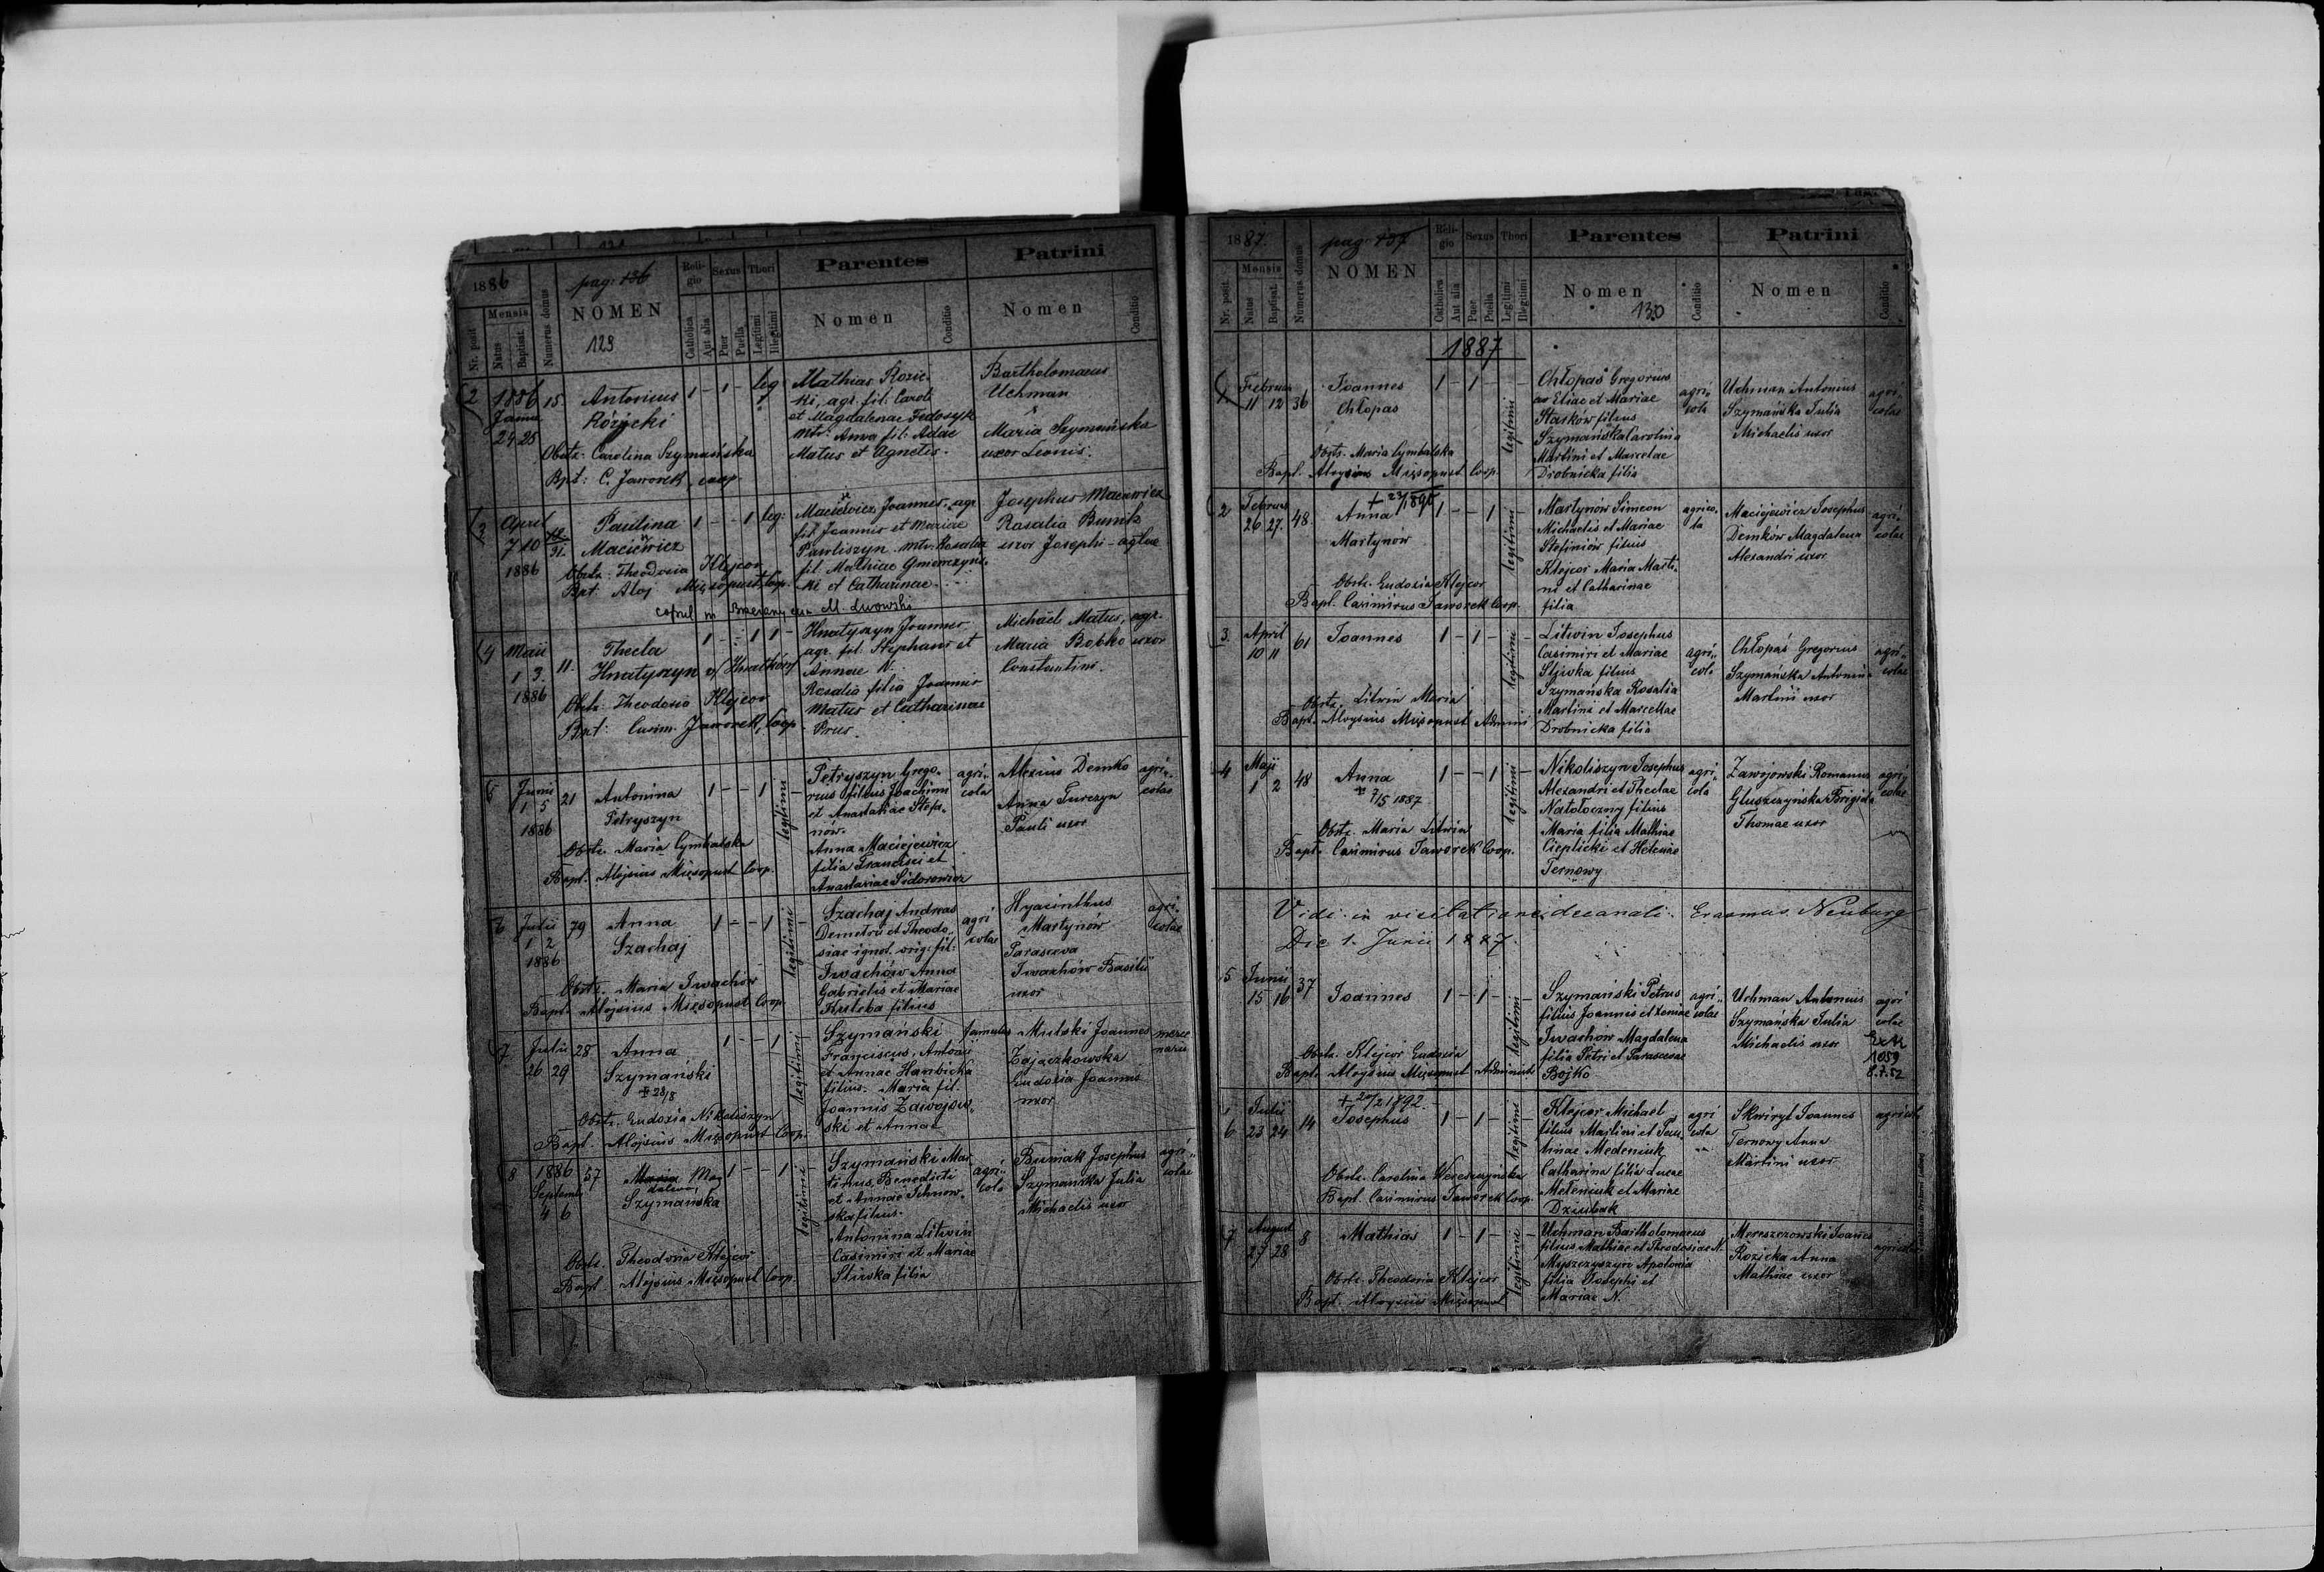 1886
pag: 136
NOMEN
129
Nr. posit
Mensis
Natus
Baptisat.
Numerus domus
Religio
Catholica
Aut alia
Sexus
Puer
Puella
Thori
Legitimi
Illegitimi
Parentes
Nomen
Conditio
Patrini
Nomen
Conditio
2 1886 Janua 24 25 15. Antonius Różycki 1 - 1 - leg
Mathias Rozic-
ki, agr. fil. Caroli
et Magdalenae Fedosyk
mtr: Anna fil: Adae
Matus et Agnetis.
Bartholomaeus
Uchman
Maria Szymańska
uxor Leonis.
Obstz: Carolina Szymańska
Bpt: C. Jaworek, coop.
3 April 7 10 1886 Paulina Maciewicz 1 - - 1 leg:
Maciewicz Joannes, agr
fil Joannis et Mariae
Pawliszyn. mtr: Rosalia
fil Mathiae
ki et Catharinae
Josephus Maciewicz
Rosalia Bunik
uxor Josephi - aglae
Obstz: Theodosia Klejcor
Bpt: Aloj Mięsopust, Coop.
copul in Brzeżany cum M. Lwowski
4 Maii 1 3. 1886 11. Thecla Hnatyszyn v/ Hnatków/ 1 - - 1 1 -
Hnatyszyn Joannes
agr. fil. Stephani et
Annae N.
Rosalia filia Joannis
Matus et Catharinae
Prus.
Michael Matus, agr.
Maria Bobko uxor
Constantini.
Obstz: Theodosia Klejcor
Bpt: Casim. Jaworek, Coop.
5 Junii 1 5 1886 21 Antonina Petryszyn 1 - - 1 legitimi -
Petryszyn Grego-
rius filius Joachimi
et Anastasiae Stepa-
nów.
Anna Maciejewicz
filia Francisci et
Anastasiae Sidorowicz
agri-
cola
Alexius Demko
Anna Turczyn
Pauli uxor
agri-
colae
Obstz. Maria Cymbalska
Bapt. Alojsius Mięsopust Coop.
6 Julii 1 2 1886 79 Anna Szachaj 1 - - 1 legitimi -
Szachaj Andreas
Demetrii et Theodo-
siae ignot. orig: fil:
Iwachów Anna
Gabrielis et Mariae
Kuleba filius
agri
colae
Hyacinthus
Martynów
Parascewa
Iwachów Basilii
uxor
agri-
colae
Obstz. Maria Iwachów
Bapt. Alojsius Mięsopust Coop.
7 Julii 26 29 28 Anna Szymański 1 - - 1 legitimi -
+ 28/8
Szymański
Franciscus, Antonii
et Annae Hanbicka
filius. Maria fil.
Joannis Zawojow-
ski et Annae
famulus
Mulski Joannes
Zajączkowska
Eudosia Joannis
uxor
merce
narii
Obstz. Eudosia Nikoliszyn
Bapt. Alojsius Mięsopust Coop.
8 1886 Septemb 4 6 57 Maria Mag
dalena
Szymańska 1 - - 1 legitimi -
Szymański Mar-
tinus, Benedicti
et Annae
ska filius.
Antonina Litwin
Casimiri et Mariae
Sliwka filia
agri-
cola
Buniak Josephus
Szymańska Julia
Michaelis uxor
agri-
colae
Obstz. Theodosia Klejcor
Bapt. Alojsius Mięsopust Coop.
1887.
pag: 137
NOMEN
Nr. posit.
Mensis
Natus
Baptisat.
Numerus domus
Religio
Catholica
Aut alia
Sexus
Puer
Puella
Thori
Legitimi
Illegitimi
Parentes
Nomen
130
Conditio
Patrini
Nomen
Conditio
1887
1 Februar 11 12 36 Joannes Chłopas 1 - 1 - legitimi -
Chłopaś Gregorius
Eliae et Mariae
Stasków filius
Szymańska Carolina
Martini et Marcelae
Drobnicka filia
agri-
cola
Uchman Antonius
Szymańska Julia
Michaelis uxor
agri-
colae
Obstz. Maria Cymbalska
Bapt. Aloysius Mięsopust Coop.
2 Februar 26 27. 48. Anna Martynów 1 - - 1 legitimi -
Martynów Simeon
Michaelis et Mariae
Stefiniów filius
Klejcor Maria Marti-
ni et Catharinae
filia
agrico-
la
Maciejewicz Josephus
Demków Magdalena
Alexandri uxor
agri-
colae
Obstz. Eudosia Klejcor
Bapt. Casimirus Jaworek Coop.
3. April 10 11 61 Joannes 1 - 1 - legitimi -
Litwin Josephus
Casimiri et Mariae
Sliwka filius
Szymańska Rosalia
Martini et Marcellae
Drobnicka filia
agri-
cola
Chłopaś Gregorius
Szymańska Antonina
Martini uxor
agri-
colae
Obstz. Litwin Maria
Bapt. Aloysius Mięsopust Admini
4 Maji 1 2 48 Anna 1 - - 1 legitimi -
+ 7/5 1887
Nikoliszyn Josephus
Alexandri et Theclae
Natołoczny filius
Maria filia Mathiae
Cieplicki et Helenae
Ternowy
agri-
cola
Zawojowski Romanus
Głuszczyńska Brigida
Thomae uxor
agri-
colae
Obstz. Maria Litwin
Bapt. Casimirus Jaworek Coop.
Vidi in visitatione decanali. Erasmus Neuburg
Die 1. Junii 1887.
5 Junii 15 16 37 Joannes 1 - 1 - legitimi -
Szymański Petrus
filius Joannis et Xeniae
Iwachów Magdalena
filia Petri et Parascevae
Bojko
agri-
colae
Uchman Antonius
Szymańska Julia
Michaelis uxor
agri
colae
1059
8.7.52
Obstz. Klejcor Eudosia
Bapt. Aloysius Mięsopust Administ
6 Julii 23 24 14 Josephus 1 - 1 - legitimi -
Klejcor Michael
filius Martini et
Medeniuk
Catharina filia Lucae
Meleniuk et Mariae
Dziubak
agri
cola
Skwiryl Joannes
Ternowy Anna
Martini uxor
agricol
Obstz. Carolina Wereszczyńska
Bapt. Casimirus Jaworek Coop.
7 August 27 28 8 Mathias 1 - 1 - legitimi -
Uchman Bartholomaeus
filius Mathiae et Theodosiae N.
Myszczyszyn Apolonia
filia Josephi et
Mariae N.
Mereszczowski Joannes
Rozicka Anna
Mathiae uxor
agricolae
Obstz. Theodosia Klejcor
Bapt. Aloysius Mięsopust